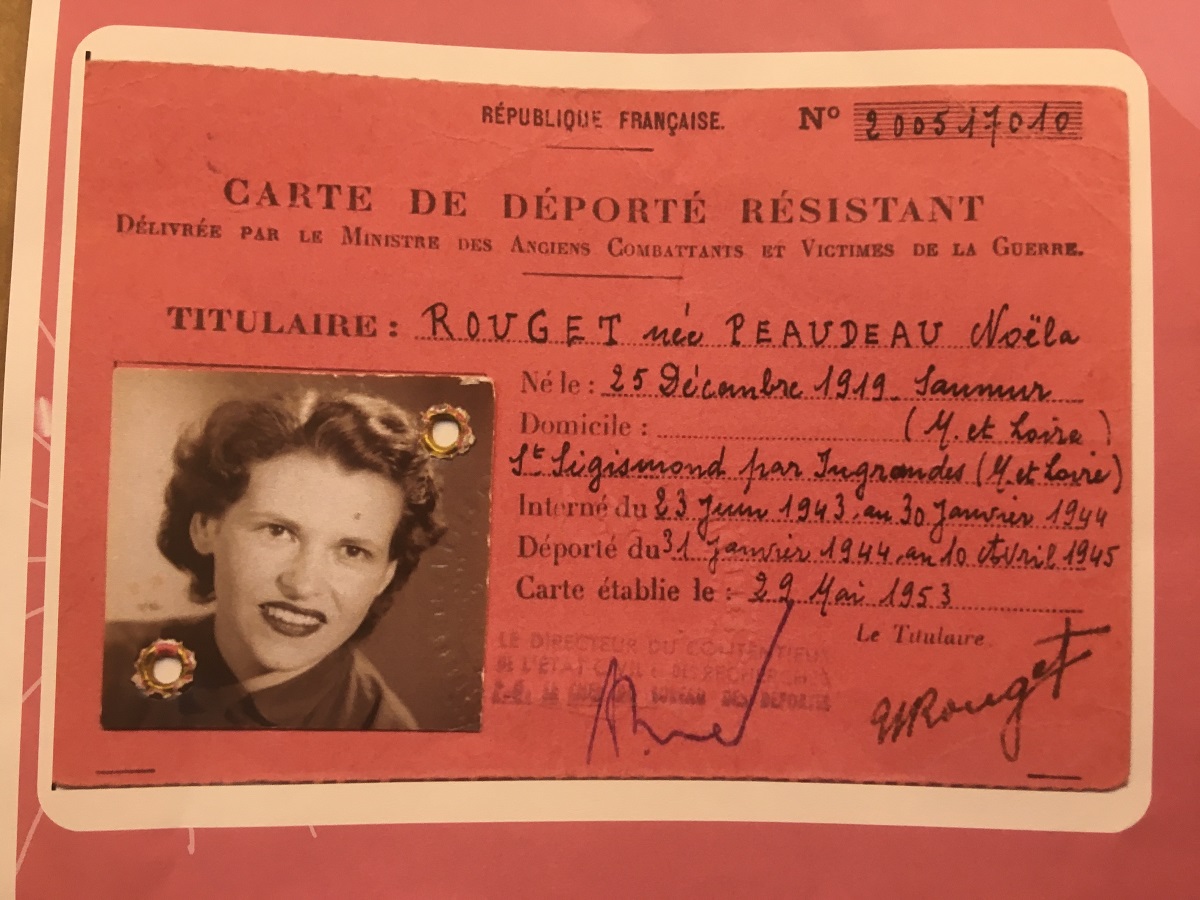 RÉPUBLIQUE FRANÇAISE.
Nº 200517010
CARTE DE DÉPORTÉ RÉSISTANT
DÉLIVRÉE PAR LE MINISTRE DES ANCIENS COMBATTANTS ET VICTIMES DE LA GUERRE.
TITULAIRE : ROUGET née PEAUDEAU Noëla
Né le : 25 Décembre 1919 Saumur
Domicile : (M. et Loire)
St Sigismond par Ingrandes (M. et Loire)
Interné du 23 Juin 1943 au 30 Janvier 1944
Déporté du 31 Janvier 1944 au 10 Avril 1945
Carte établie le : 29 Mai 1953
Le Titulaire
LE DIRECTEUR DU CONTENTIEUX
DE L'ÉTAT CIVIL DES RECHERCHES
BUREAU DES DÉPORTÉS
Rouget